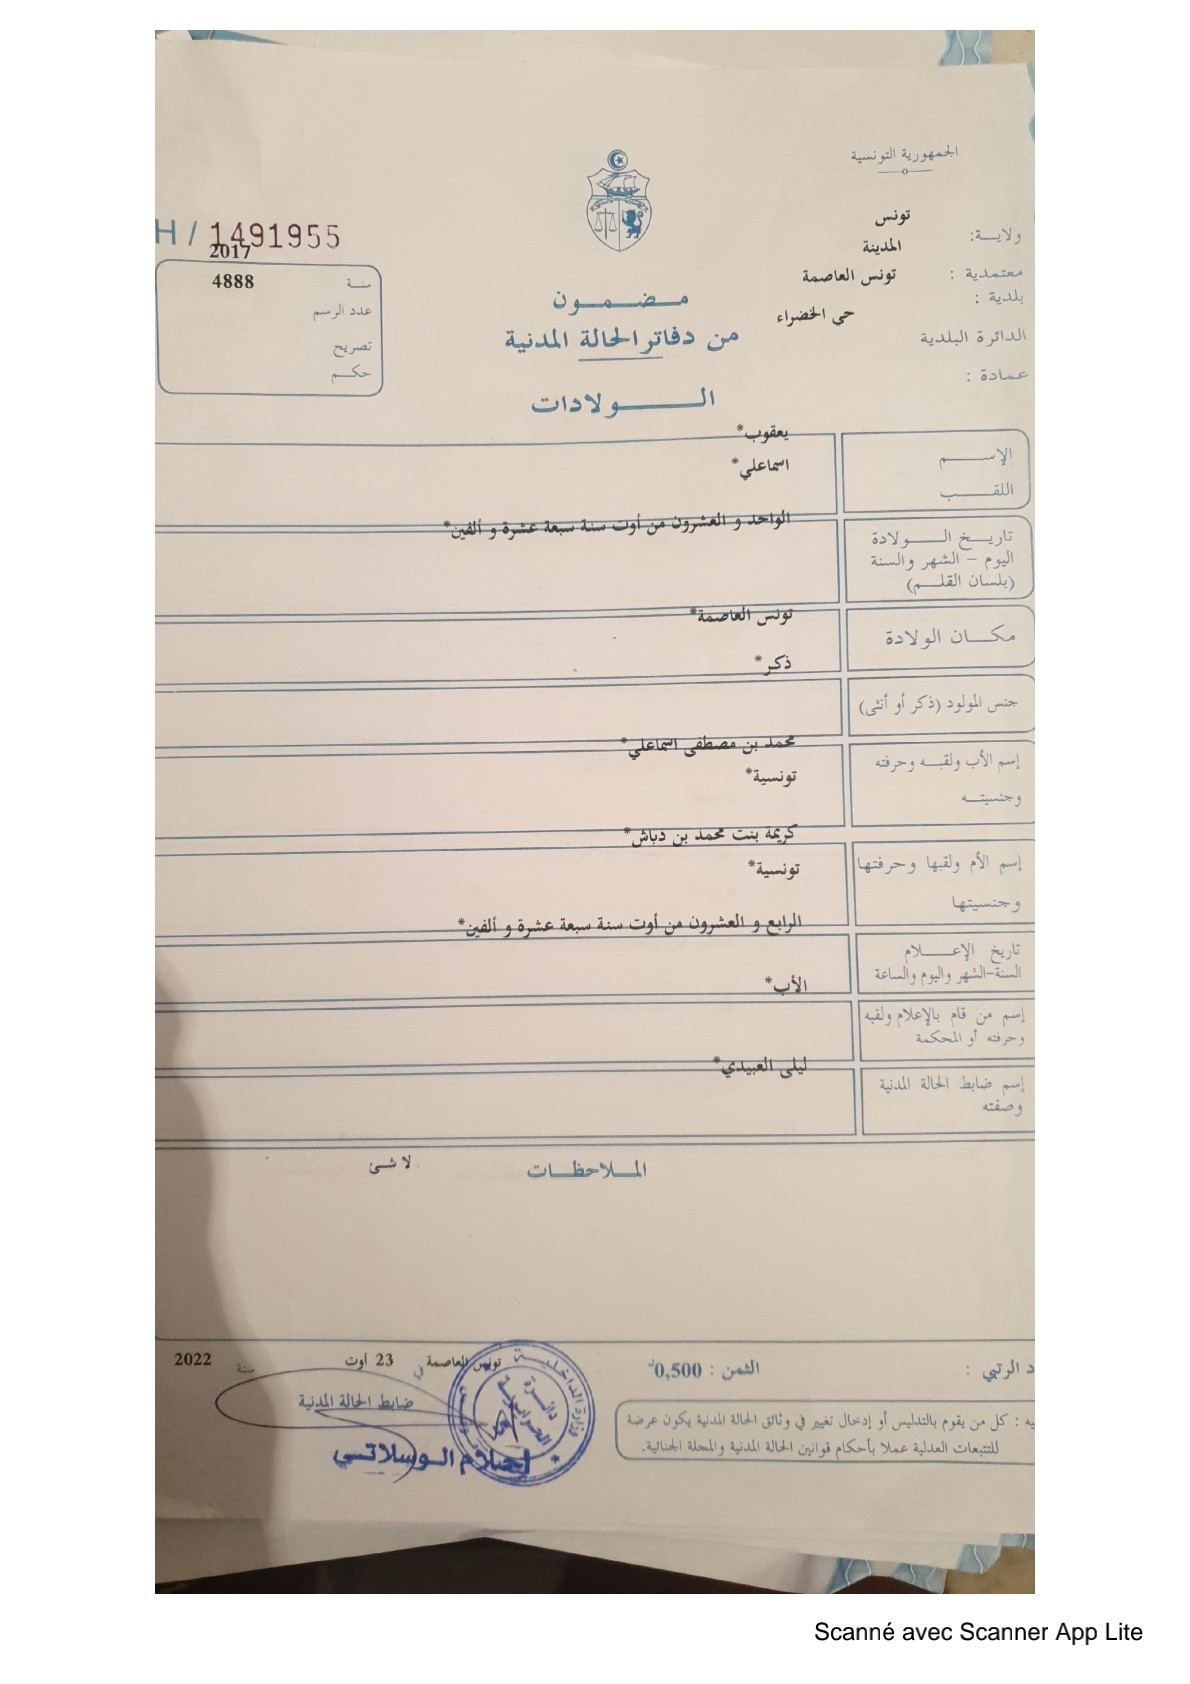 الجمهورية التونسية
تونس
ولايـــة:
المدينة
معتمدية :
تونس العاصمة
بلدية :
حي الخضراء
الدائرة البلدية
عمادة :
H / 1491955
2017
سنـة
4888
عدد الرسم
تصريح
حكـــم
مـــضـــمـــون
من دفاتر الحالة المدنية
الـــــولادات
الإســـــم
يعقوب*
اللقـــــب
اسماعلي*
تاريـــخ الـــــولادة
اليوم – الشهر والسنة
(بلسان القلـــم)
الواحد و العشرون من أوت سنة سبعة عشرة و ألفين*
مكـــان الولادة
تونس العاصمة*
جنس المولود (ذكر أو أنثى)
ذكر*
إسم الأب ولقبـــه وحرفته
محمد بن مصطفى اسماعلي*
وجنسيتـــه
تونسية*
إسم الأم ولقبها وحرفتها
كريمة بنت محمد بن دباش*
وجنسيتها
تونسية*
تاريخ الإعـــــلام
السنة-الشهر واليوم والساعة
الرابع و العشرون من أوت سنة سبعة عشرة و ألفين*
إسم من قام بالإعلام ولقبه
وحرفته أو المحكمة
الأب*
إسم ضابط الحالة المدنية
وصفته
ليلى العبيدي*
الملاحظات
لا شئ
د الرتبي :
الثمن : 0,500د
تونس العاصمة في 23 أوت سنة 2022
ضابط الحالة المدنية
أحلام الوسلاتي
وزارة الداخلية
دائرة
يه : كل من يقوم بالتدليس أو إدخال تغيير في وثائق الحالة المدنية يكون عرضة
للتتبعات العدلية عملا بأحكام قوانين الحالة المدنية والمجلة الجنائية.
Scanné avec Scanner App Lite